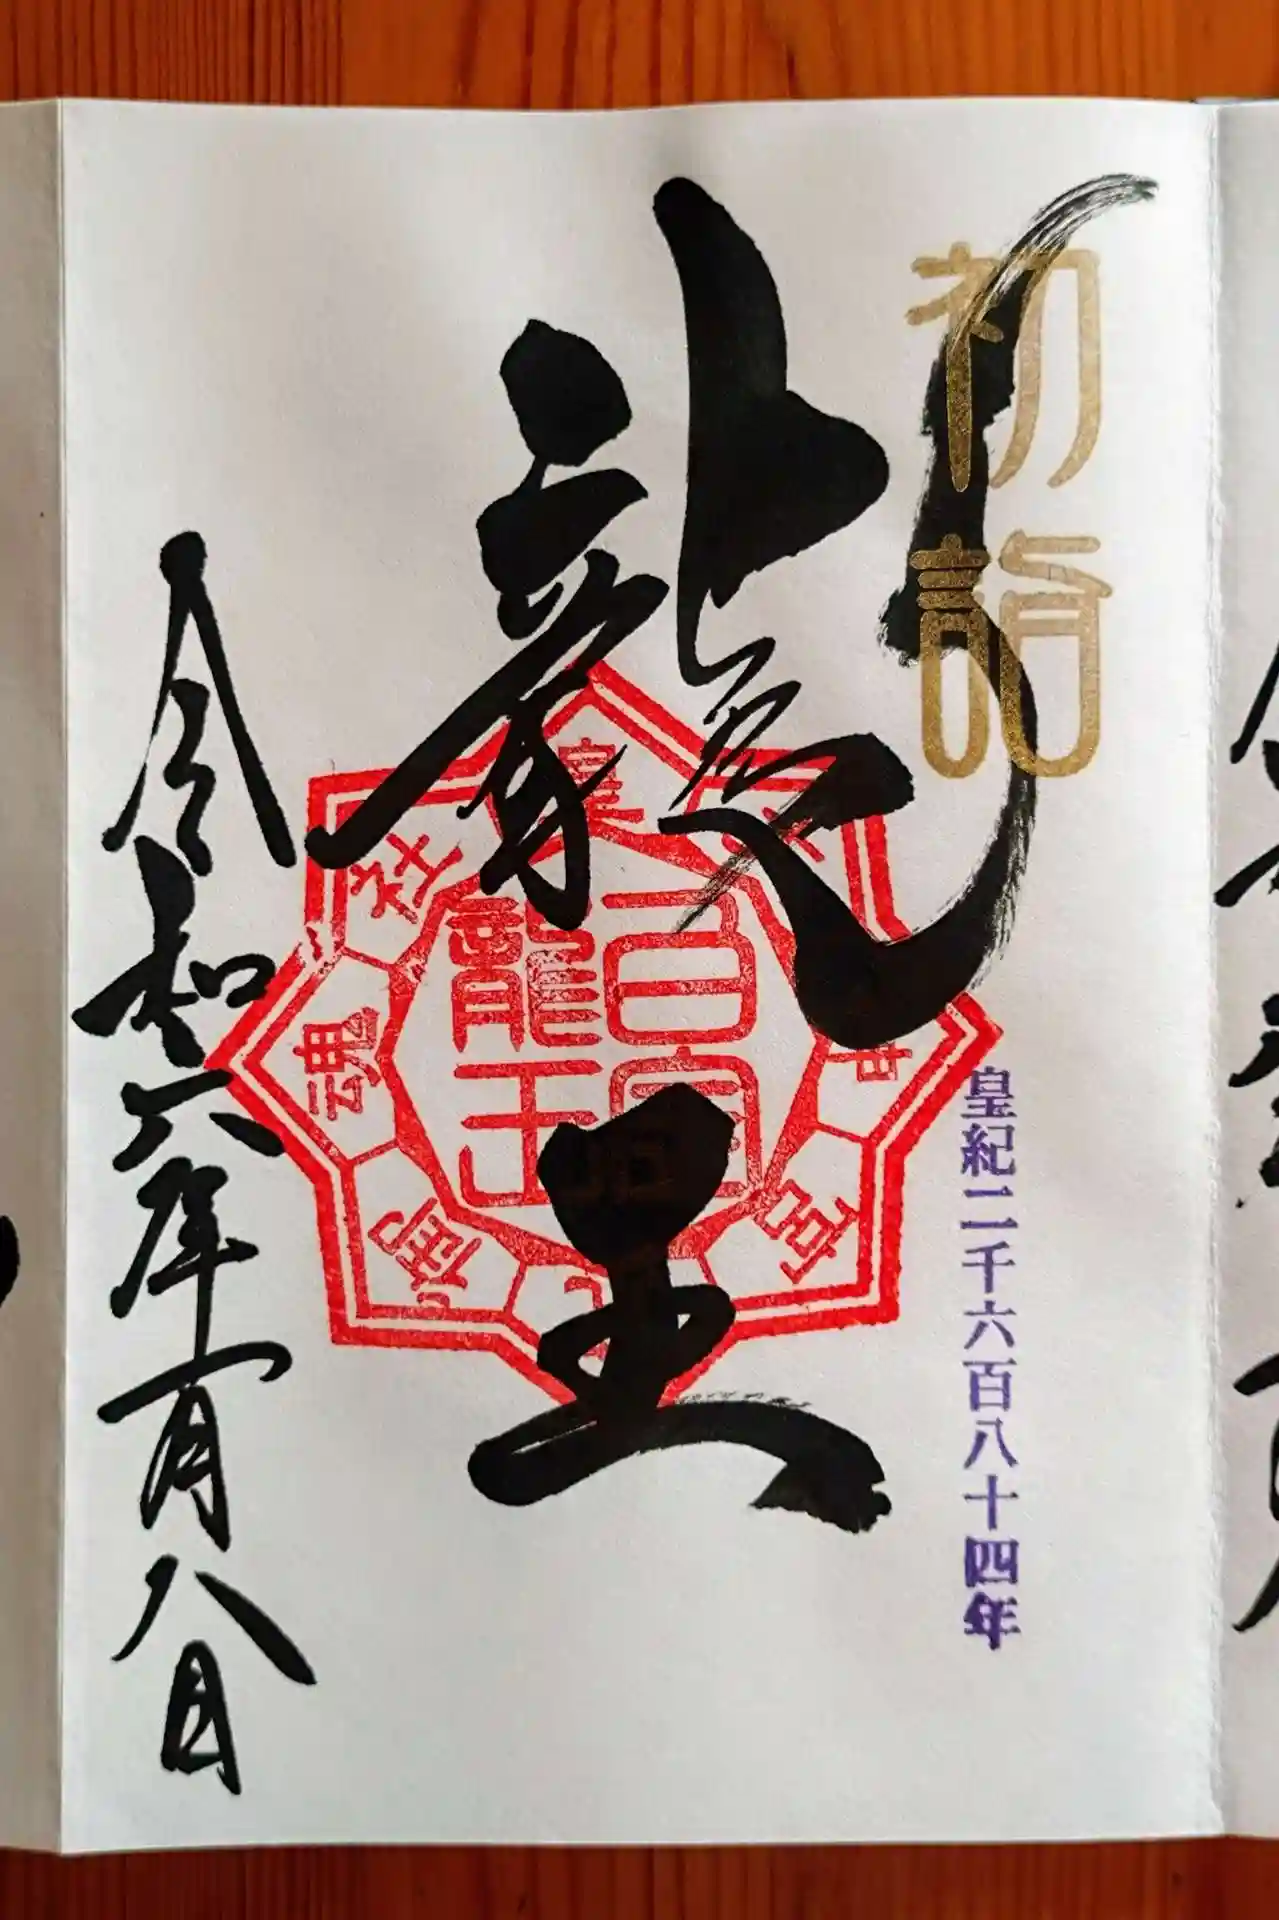 初詣
皇紀二千六百八十四年
龍王
白宮
龍王
令和六年一月八日